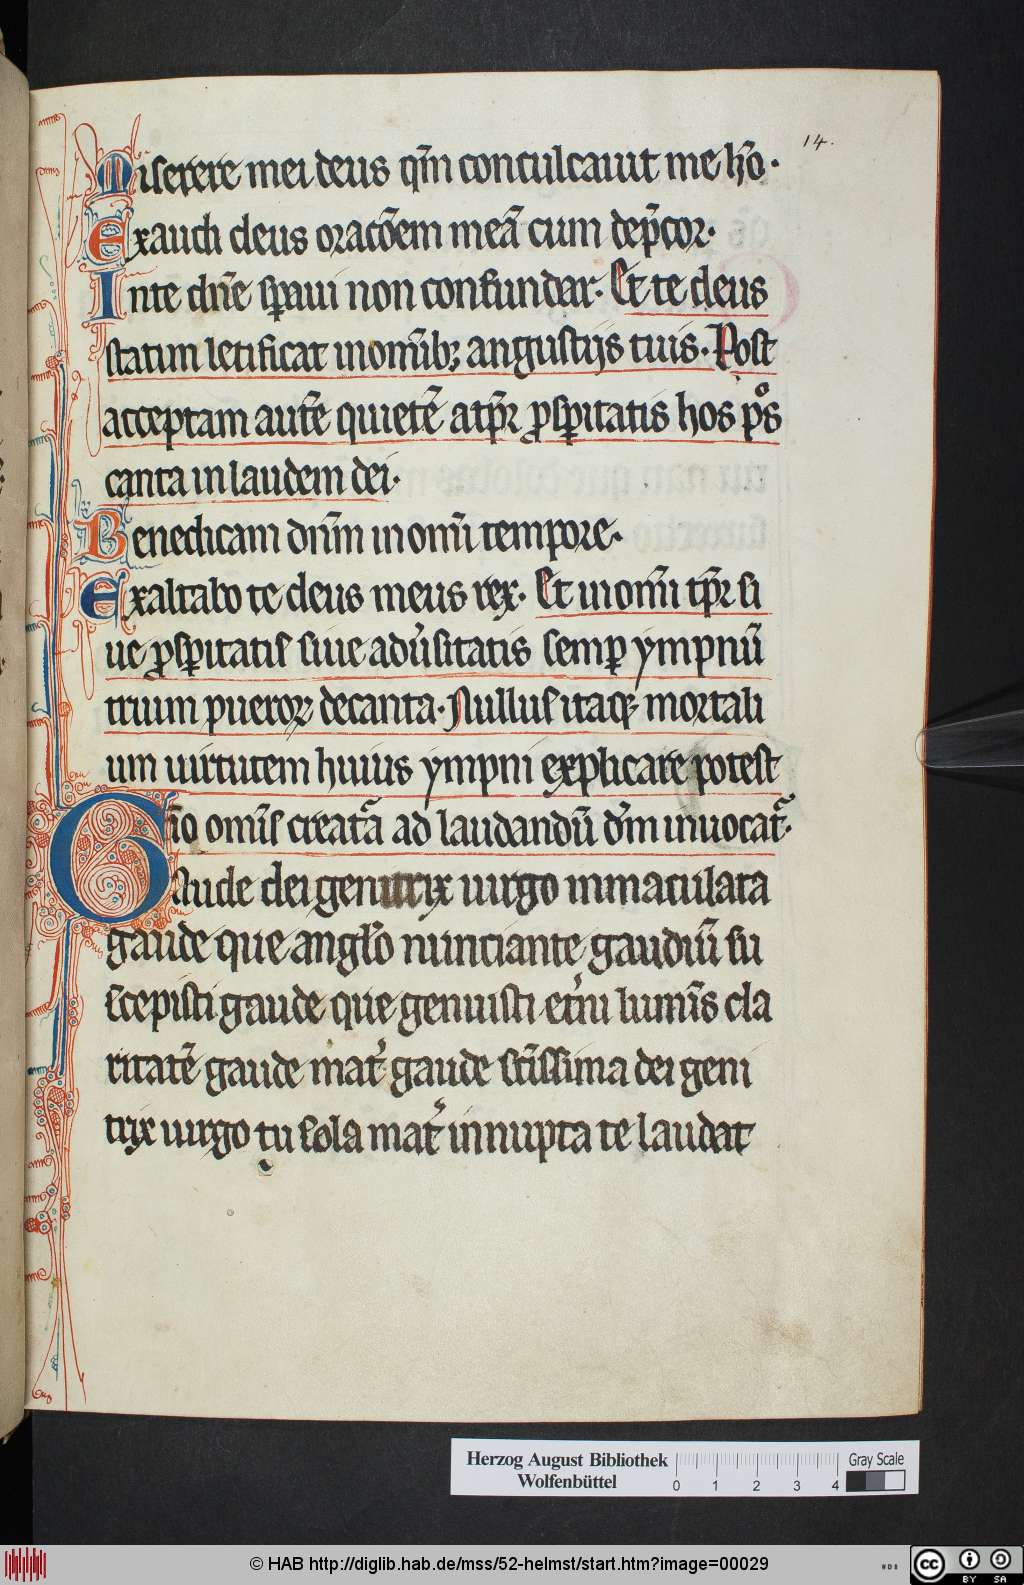 14.
Miserere mei deus qm̄ conculcauit me hō.
Exaudi deus orac̄oem meā cum dep̄cor.
Inte dn̄e sꝑaui non confundar. Et te deus
statim letificat inom̄ibꝫ angustijs tuis. Post
acceptam aut̄e quietē atꝑ ꝓsꝑitatis hos pͦs
canta in laudem dei.
Benedicam dn̄m inom̄i tempore.
Exaltabo te deus meus rex. Et inom̄i tꝑr si
ue ꝓsꝑitatis siue adu̾sitatis semꝑ ympnū
trium pueroꝝ decanta. Nullus itaqꝫ mortali
um uirtutem huius ympni explicare potest
ī quo om̄is creat̾a ad laudandū dm̄ inuocat̾.
Gaude dei genitrix uirgo inmaculata
gaude que angl̄o nunciante gaudiū su
scepisti gaude que genuisti et̾ni lumīs cla
ritatē gaude mat̾ gaude sc̄issima dei geni
trix uirgo tu sola mat̾ innupta te laudat
Herzog August Bibliothek
Wolfenbüttel
0 1 2 3 4
Gray Scale
© HAB http://diglib.hab.de/mss/52-helmst/start.htm?image=00029
WDB
cc BY SA